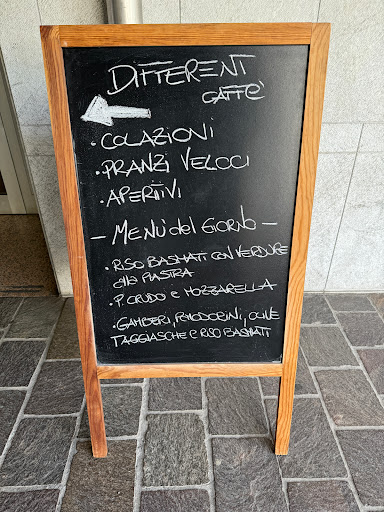 DIFFERENT
CAFFÈ
• COLAZIONI
• PRANZI VELOCI
• APERITIVI
— MENÙ del GIORNO —
• RISO BASMATI CON VERDURE
alla PIASTRA
• P. CRUDO e MOZZARELLA
• GAMBERI, POMODORINI, OLIVE
TAGGIASCHE e RISO BASMATI